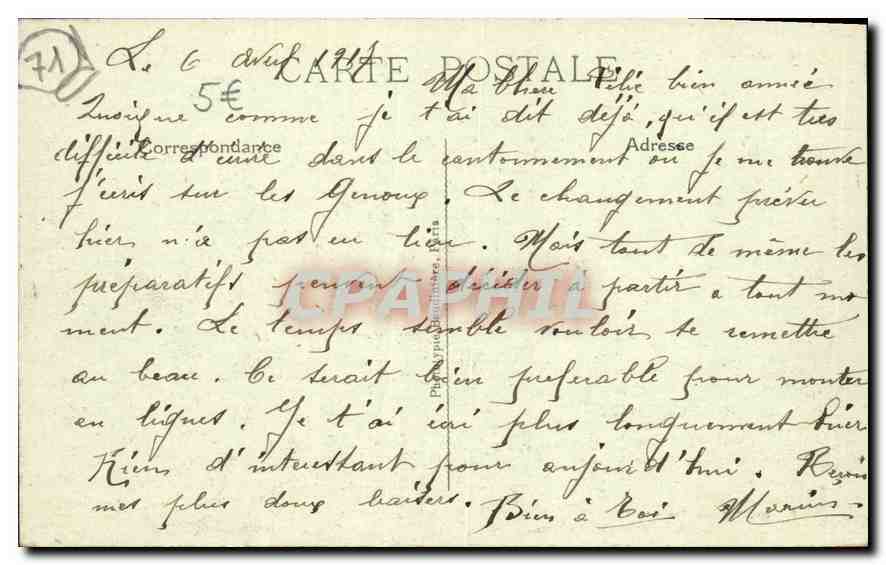 71
Le 6 Avril 1917
CARTE POSTALE
5€
Ma bien aimée
Quoique comme je t'ai dit déjà, qu'il est tres
Correspondance
Adresse
difficile d'ecrire dans le cantonnement ou je me trouve
j'ecris sur les Genoux. Le changement prévu
hier n'a pas eu lieu. Mais tout de même les
préparatifs peuvent décider a partir a tout mo
CPAPHIL
ment. Le temps semble vouloir se remettre
au beau. Ce serait bien preferable pour monter
en lignes. Je t'ai écri plus longuement hier
Rien d'interessant pour aujourd'hui. Reçois
mes plus doux baisers. Bien à Toi Marius
Phototypie Baudinière, Paris